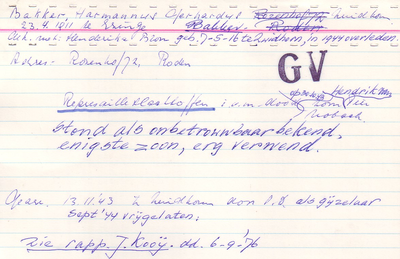 Bakker, Harmannus Gerhardus Zuidhorn
23.4.1911 te Ezinge Bakker Roden
Geh. met Hendrikje Bron geb. 7-5-16 te Zuidhorn, in 1944 overleden.
Adres: Rozenhof 72, Roden
GV
Represailleslachtoffer i.v.m. dood opperw. Hendrikman
stond als onbetrouwbaar bekend,
enigste zoon, erg verwend.
Gearr. 13.11.'43 Zuidhorn door S.D. als gijzelaar
Sept '44 vrijgelaten.
Zie rapp. J. Kooÿ. dd. 6-9-'76